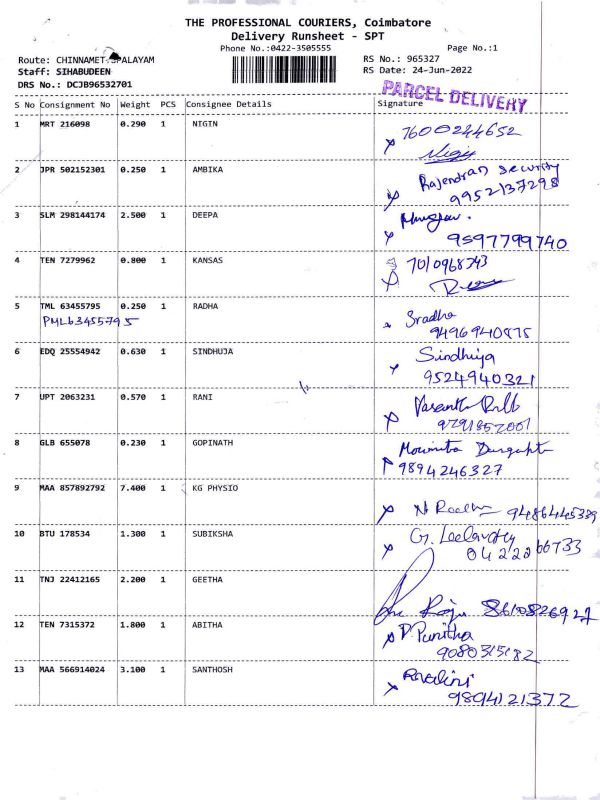 THE PROFESSIONAL COURIERS, Coimbatore
Delivery Runsheet - SPT
Phone No.:0422-3505555 Page No.:1
Route: CHINNAMET PALAYAM RS No.: 965327
Staff: SIHABUDEEN RS Date: 24-Jun-2022
DRS No.: DCJB96532701
PARCEL DELIVERY
S No Consignment No Weight PCS Consignee Details Signature
1 MRT 216098 0.290 1 NIGIN 7600244652
2 JPR 502152301 0.250 1 AMBIKA Rajendran Security
9952137298
3 SLM 298144174 2.500 1 DEEPA
9597799740
4 TEN 7279962 0.800 1 KANSAS 7010968743
5 TML 63455795 0.250 1 RADHA Sradha
PML63455795 9496940875
6 EDQ 25554942 0.630 1 SINDHUJA Sindhuja
9524940321
7 UPT 2063231 0.570 1 RANI
9791852001
8 GLB 655078 0.230 1 GOPINATH
9894246327
9 MAA 857892792 7.400 1 KG PHYSIO
10 BTU 178534 1.300 1 SUBIKSHA G.
11 TNJ 22412165 2.200 1 GEETHA
Raju 8610826927
12 TEN 7315372 1.800 1 ABITHA P. Punitha
9080315182
13 MAA 566914024 3.100 1 SANTHOSH
9894121372